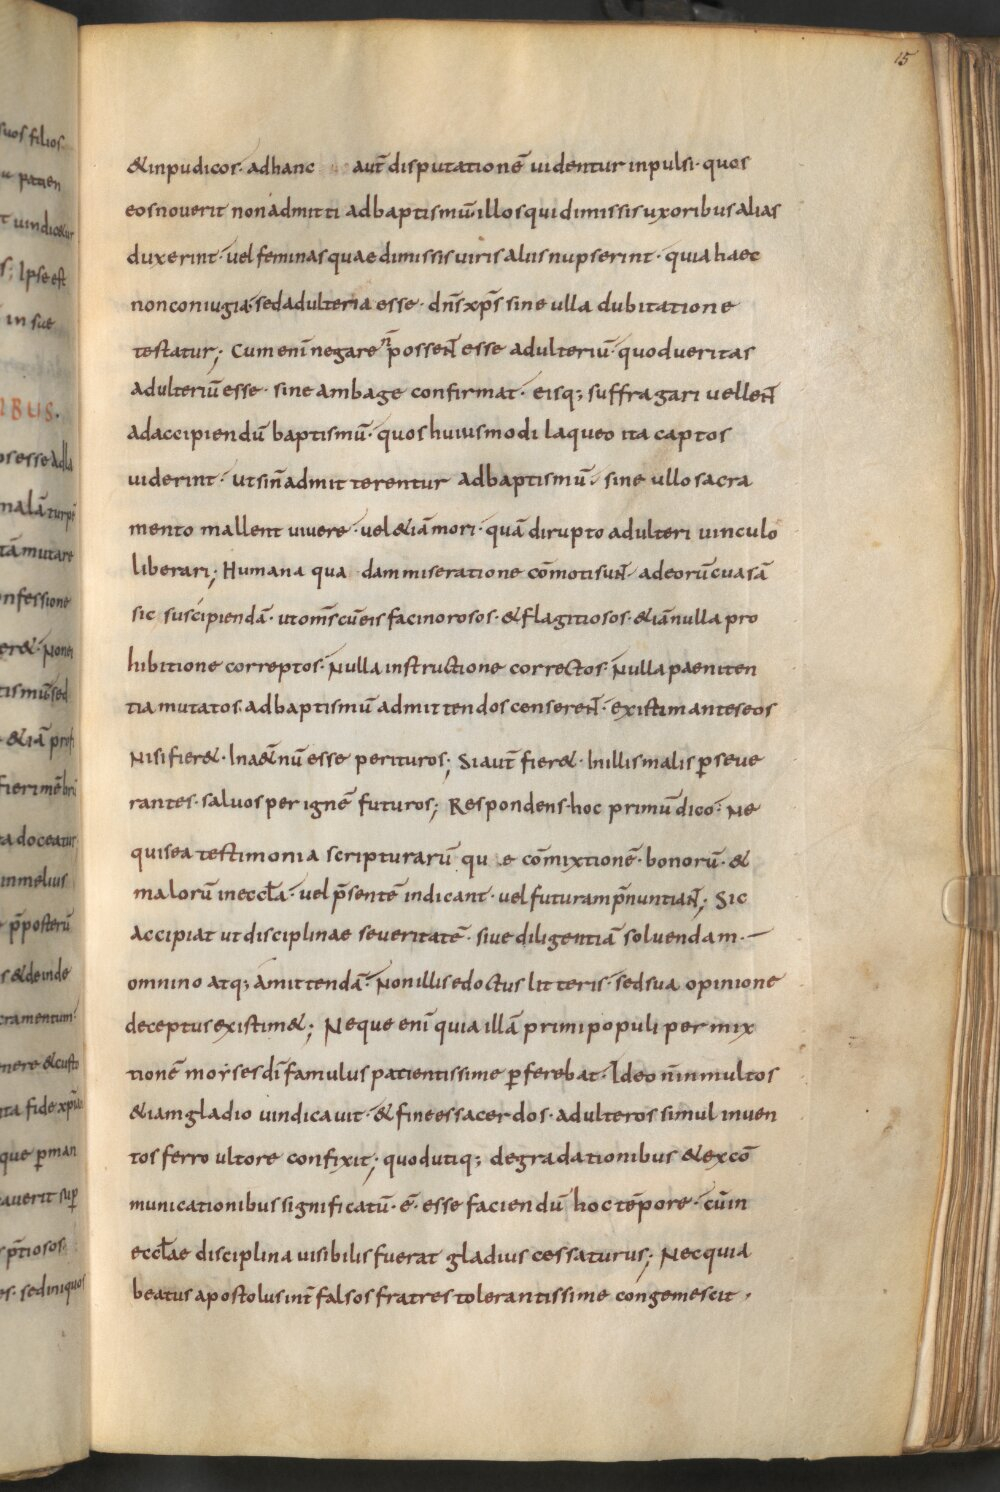 15
&inpudicos· adhanc aut̄ disputationē uidentur inpulsi· quos
eos nouerit non admitti ad baptismū· illos qui dimissis uxoribus alias
duxerint· uel feminas quae dimissis uiris aliis nupserint· quia haec
non coniugia· sed adulteria esse· dn̄s xp̄s sine ulla dubitatione
testatur; Cum eni̅ negare n̄ possent esse adulteriū· quod ueritas
adulteriū esse· sine ambage confirmat· eisq; suffragari uellent
ad accipiendū baptismū· quos huiusmodi laqueo ita captos
uiderint· ut sin̄ admitterentur ad baptismū· sine ullo sacra
mento mallent uiuere· uel &iā mori· quā dirupto adulteri uinculo
liberari; Humana qua dam miseratione cōmoti sunt adeorū cuasā
sic suscipiendā· ut om̄s cū eis facinorosos· & flagitiosos· &iā nulla pro
hibitione correptos· Nulla instructione correctos· Nulla paeniten
tia mutatos· ad baptismū admittendos censerent· existimantes eos
Nisi fier&· In a&n̄ū esse perituros; Si aut̄ fier&· In illis malis p̄seue
rantes· saluos per ignē futuros; Respondens· hoc primū dico· Ne
quis ea testimonia scripturarū qu e cōmixtionē· bonorū· &
malorū in eccl̄a· uel p̄sentē indicant· uel futuram p̄nuntiant; Sic
accipiat ut disciplinae seueritatē· siue diligentiā soluendam·
omnino atq; amittendā· Non illis edoctus litteris· sed sua opinione
deceptus existim&; Neque eni̅ quia illā primi populi permix
tionē moyses di̅ famulus patientissime p̄ferebat· Ideo n̄ in multos
&iam gladio uindicauit· & finees sacerdos· adulteros simul inuen
tos ferro ultore confixit; quod utiq; degradationibus & excō
municationibus significatū· ē· esse faciendū hoc tēpore· cū in
eccl̄ae disciplina uisibilis fuerat gladius cessaturus; Nec quia
beatus apostolus int̄ falsos fratres tolerantissime congemescit·